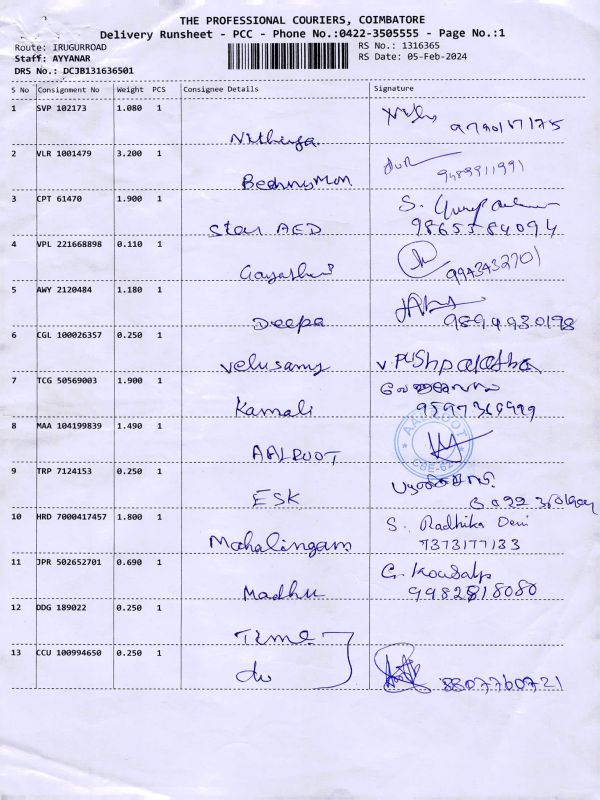 THE PROFESSIONAL COURIERS, COIMBATORE
Delivery Runsheet - PCC - Phone No.:0422-3505555 - Page No.:1
Route: IRUGURROAD
Staff: AYYANAR
DRS No.: DCJB131636501
RS No.: 1316365
RS Date: 05-Feb-2024
S No Consignment No Weight PCS Consignee Details Signature
1 SVP 102173 1.080 1
Nithiya
2 VLR 1001479 3.200 1
9489911991
3 CPT 61470 1.900 1
Star AED 9865584094
4 VPL 221668898 0.110 1
Gayathri 9943432701
5 AWY 2120484 1.180 1
Deepa 9894930198
6 CGL 100026357 0.250 1
Velusamy V. Pushpalatha
7 TCG 50569003 1.900 1
Kamali 9597369999
8 MAA 104199839 1.490 1
AALROOT AALROOT CBE-62
9 TRP 7124153 0.250 1
ESK
10 HRD 7000417457 1.800 1 S. Radhika Devi
Mahalingam 7373177133
11 JPR 502652701 0.690 1 G. Kousalya
Madhu 9982818080
12 DDG 189022 0.250 1
Time
13 CCU 100994650 0.250 1
do 8807760721